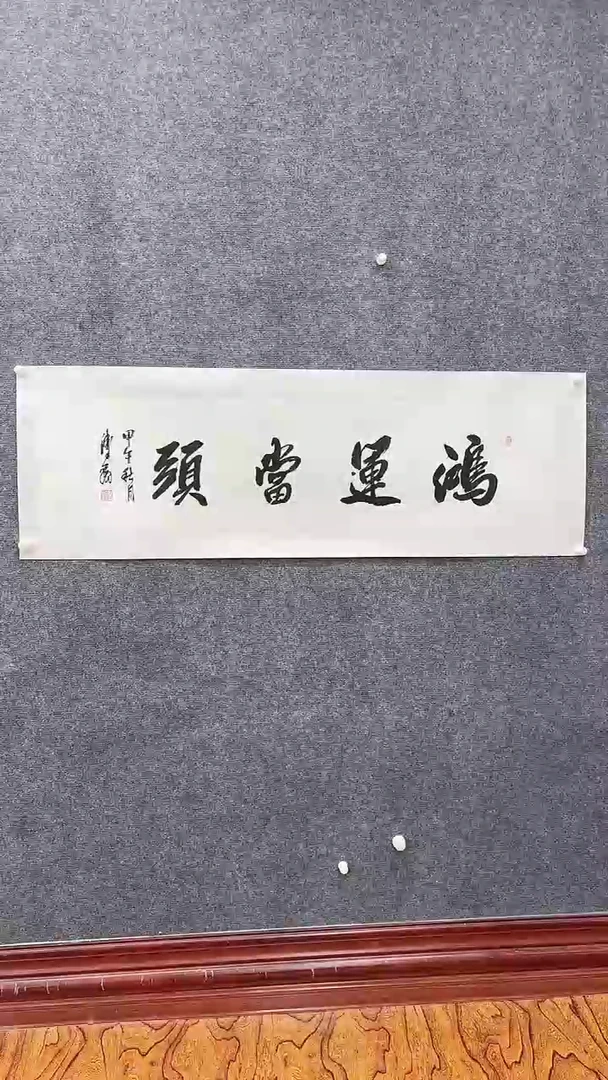 鴻運當頭
甲午秋月